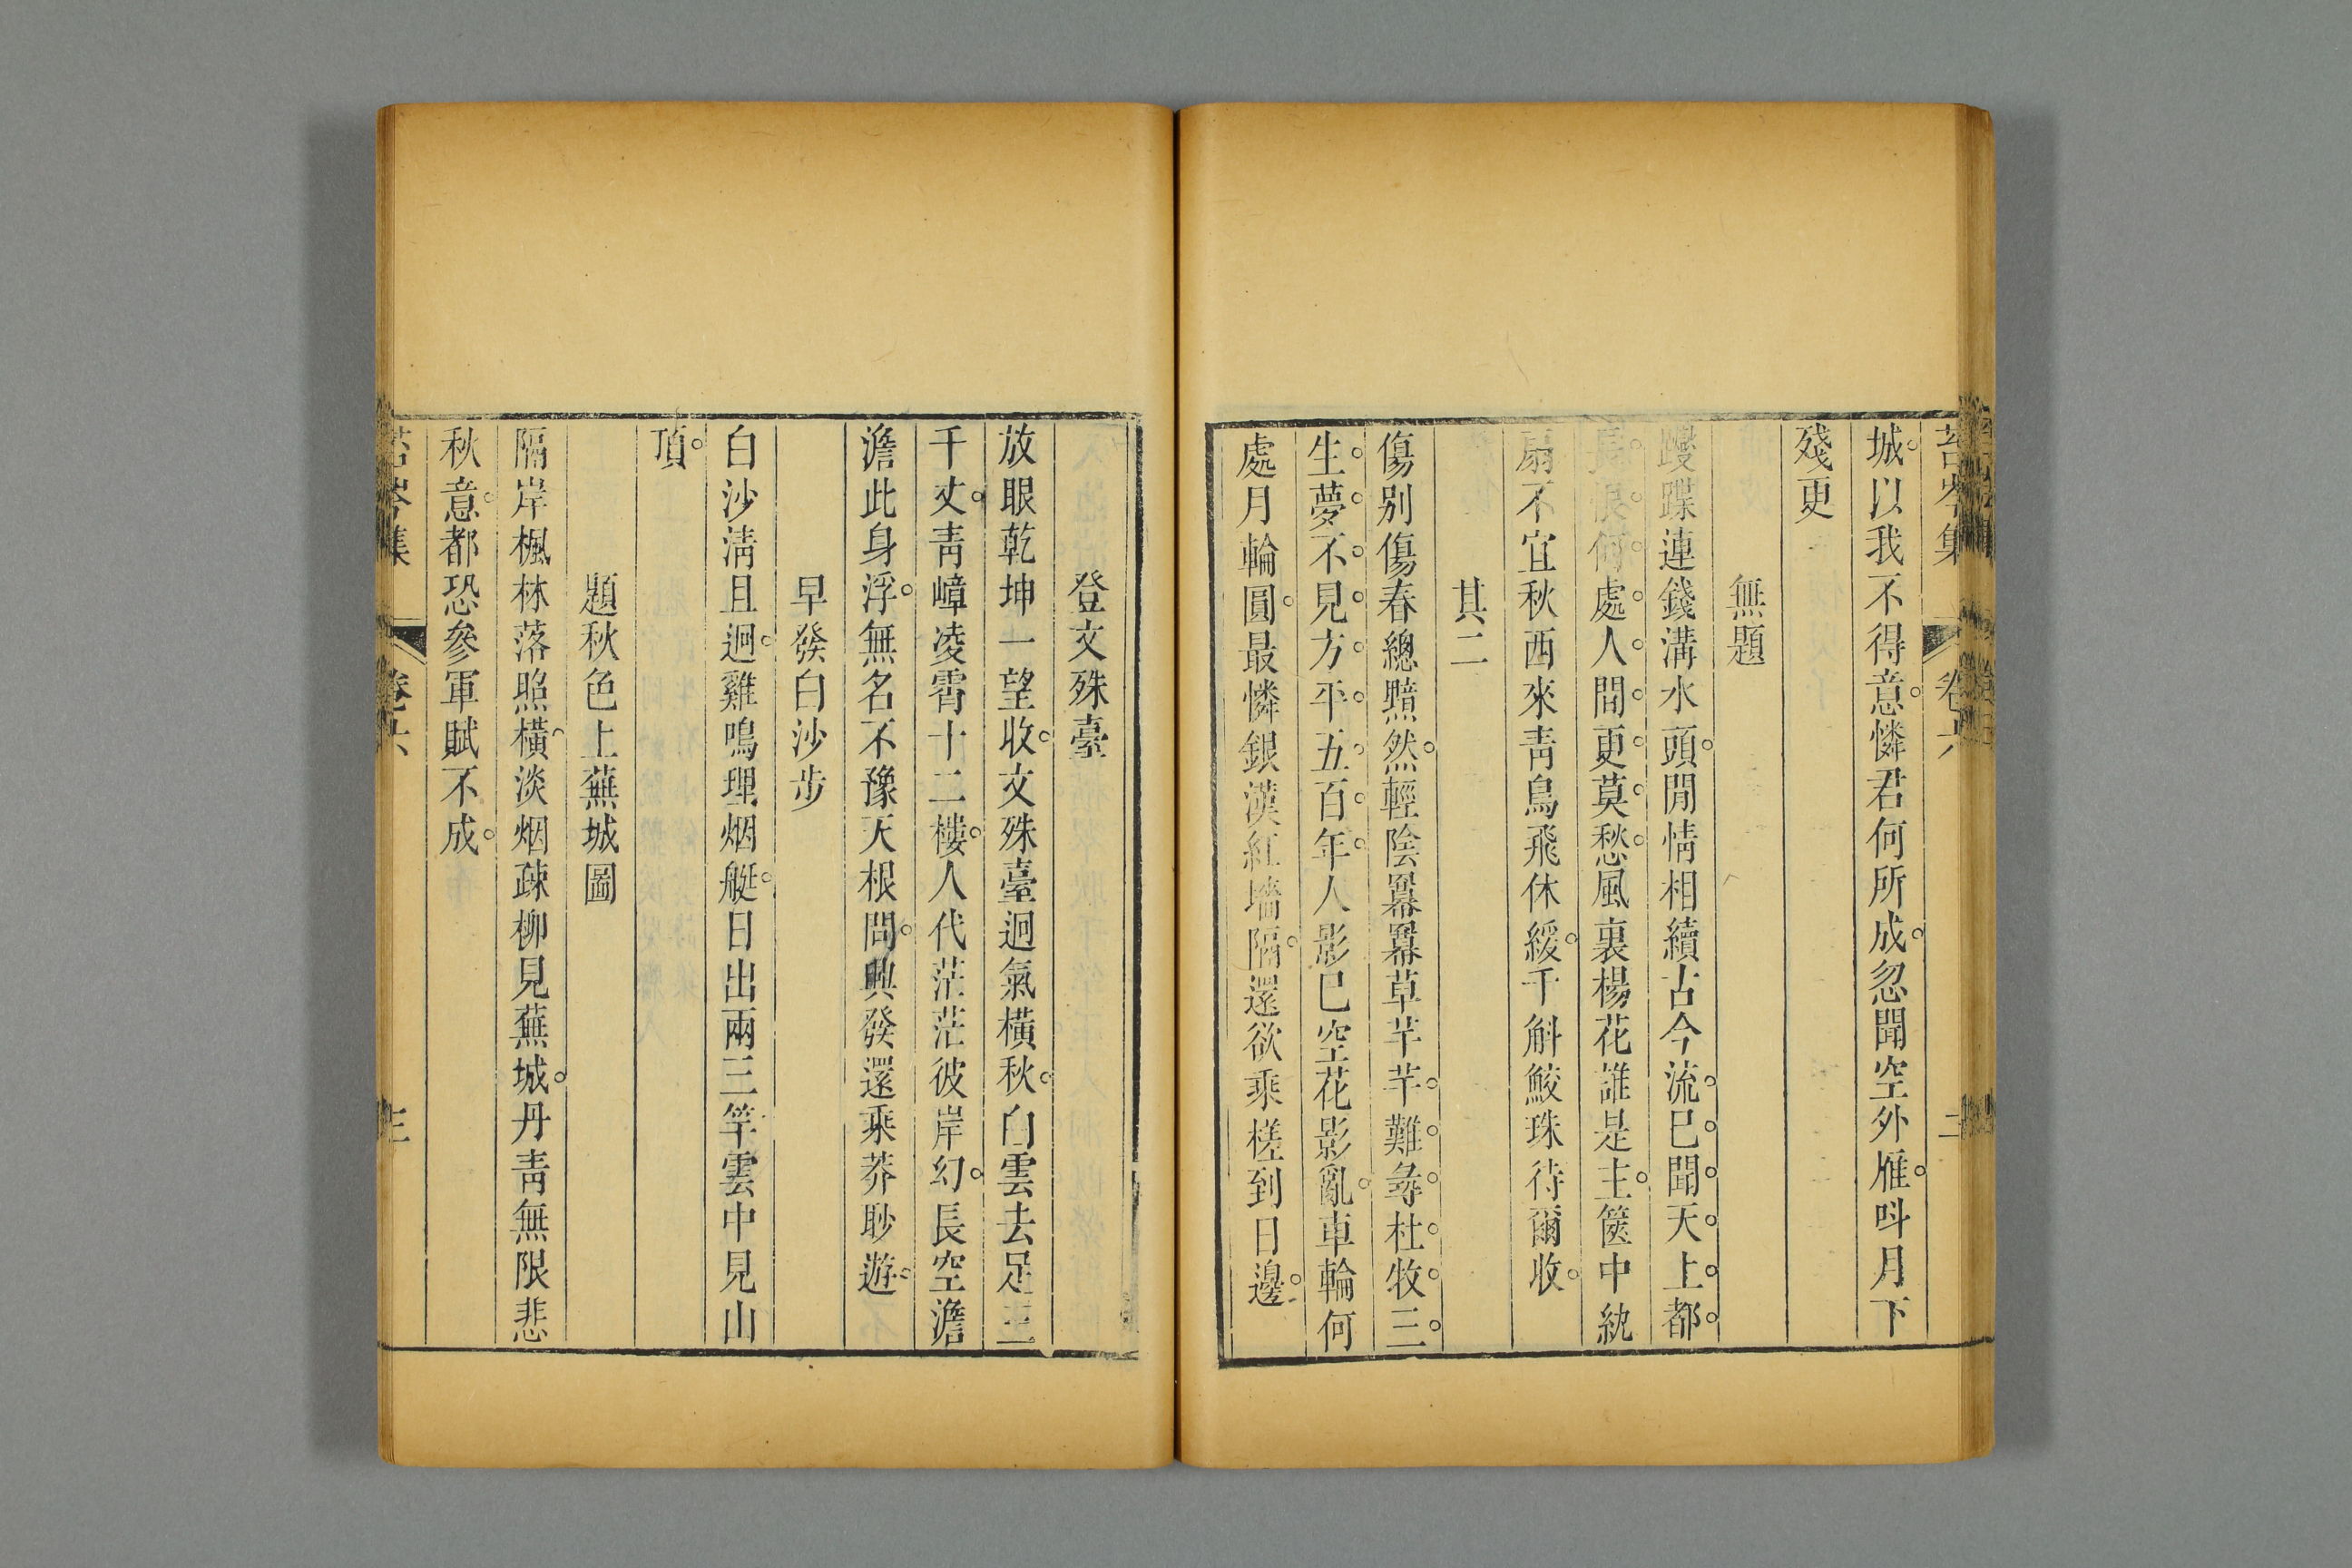 苔岑集 卷六
城以我不得意憐君何所成忽聞空外雁呌月下
殘更
無題
躞蹀連錢溝水頭閒情相續古今流已聞天上都
長恨何處人間更莫愁風裏楊花誰是主篋中紈
扇不宜秋西來靑鳥飛休緩千斛鮫珠待爾收
其二
傷別傷春總黯然輕陰羃羃草芊芊難尋杜牧三
生夢不見方平五百年人影已空花影亂車輪何
處月輪圓最憐銀漢紅墻隔還欲乘槎到日邊
登文殊臺
放眼乾坤一望收文殊臺迥氣橫秋白雲去足三
千丈靑嶂凌霄十二樓人代茫茫彼岸幻長空澹
澹此身浮無名不豫天根問興發還乘莽眇遊
早發白沙步
白沙淸且迥雞鳴理烟艇日出兩三竿雲中見山
頂
題秋色上蕪城圖
隔岸楓林落照橫淡烟疎柳見蕪城丹靑無限悲
秋意都恐參軍賦不成
苔岑集 卷六